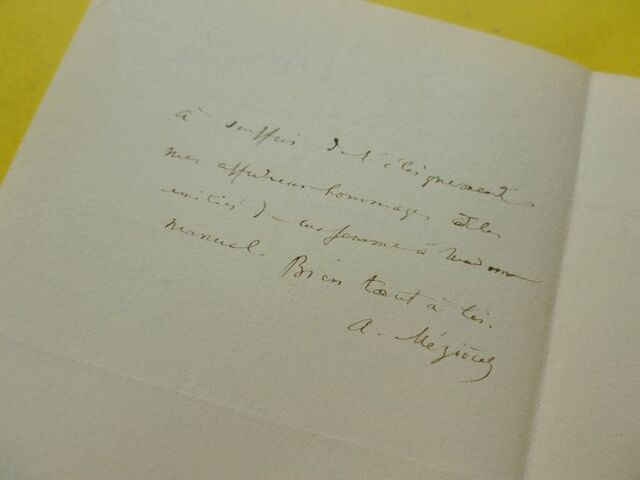 à souffrir de l'éloignement
mes affectueux hommages et les
amitiés de ma femme à Madame
Manuel. Bien tout à toi.
A. Mézières